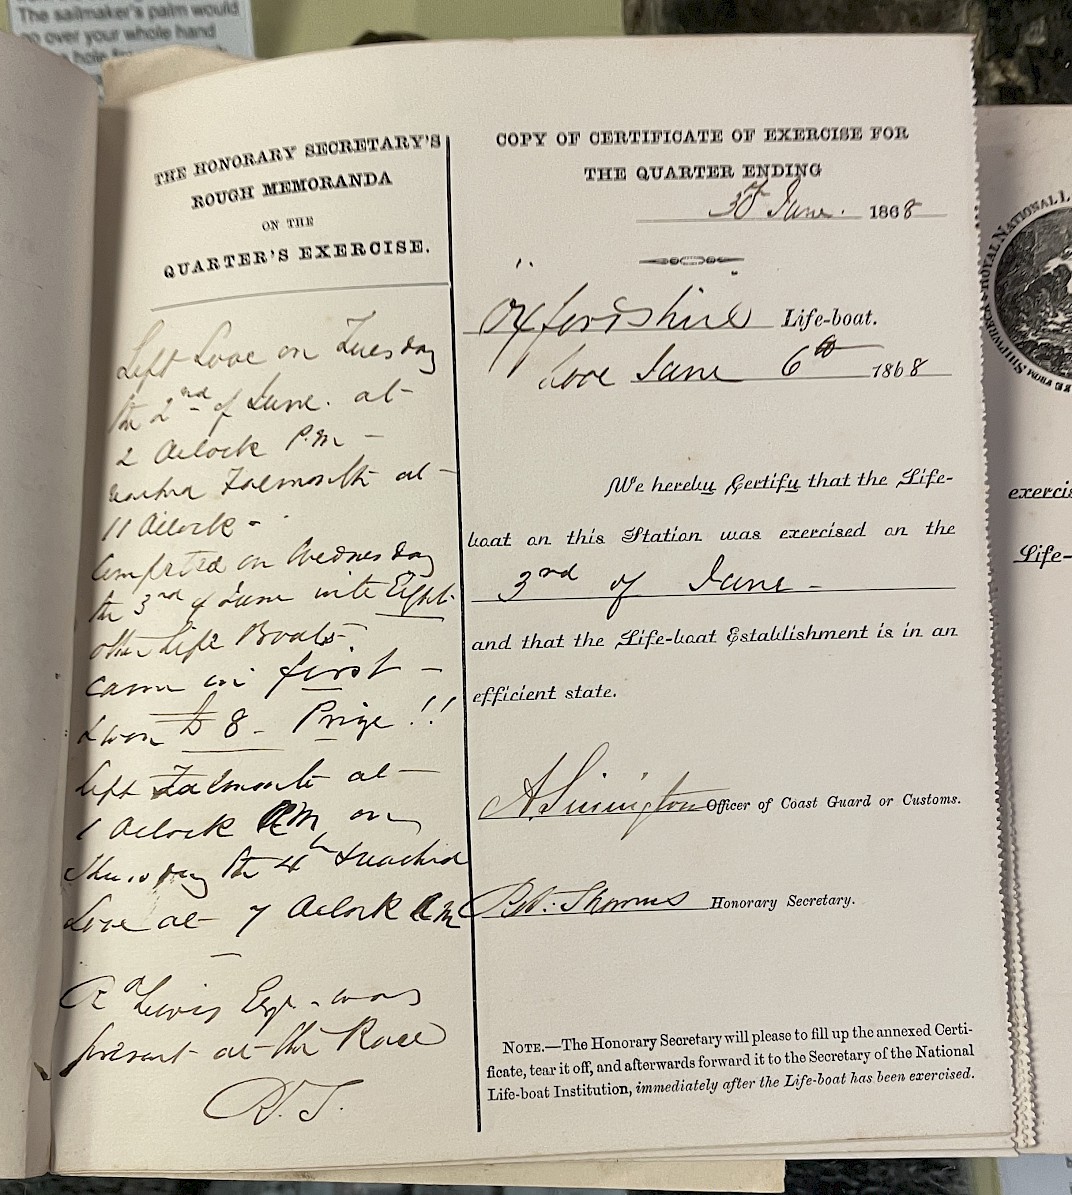 The sailmaker's palm would
go over your whole hand
THE HONORARY SECRETARY'S
ROUGH MEMORANDA
ON THE
QUARTER'S EXERCISE.
Left Looe on Tuesday
the 2nd of June. at
2 Oclock P.M -
reached Falmouth at
11 Oclock -
Competed on Wednesday
the 3rd of June with Eight
other Life Boats
came in first -
& won £8 - Prize!!
left Falmouth at
1 Oclock AM on
Thursday the 4th & reached
Looe at 7 Oclock AM
Rd Lewis Esqr. was
present at the Race
R.T.
COPY OF CERTIFICATE OF EXERCISE FOR
THE QUARTER ENDING
30th June. 1868
Oxfordshire Life-boat.
Looe June 6th 1868
We hereby Certify that the Life-
boat on this Station was exercised on the
3rd of June -
and that the Life-boat Establishment is in an
efficient state.
Officer of Coast Guard or Customs.
Rd. Thomas Honorary Secretary.
NOTE.—The Honorary Secretary will please to fill up the annexed Certi-
ficate, tear it off, and afterwards forward it to the Secretary of the National
Life-boat Institution, immediately after the Life-boat has been exercised.
ROYAL NATIONAL L
FROM SHIPWRECK
exercis
Life-